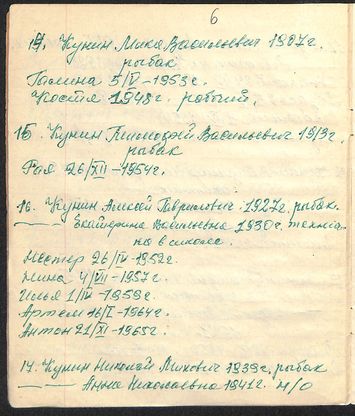 6
14. Кунин Мика Васильевич 1907г.
рыбак
Галина 5/V-1953г.
Костя 1948г. рабочий.
15. Кунин Тимофей Васильевич 1913г.
рыбак
Рая 26/XII-1954г.
16. Кунин Алексей Гаврилович 1927г. рыбак.
—— Екатерина Васильевна 1930г. техничка
в школе.
Нестер 26/IV-1952г.
Нина 4/VII-1957г.
Илья 1/IV-1959г.
Артем 16/I-1964г.
Антон 21/XI-1965г.
17. Кунин Николай Михович 1939г. рыбак
—— Анна Николаевна 1941г. н/о